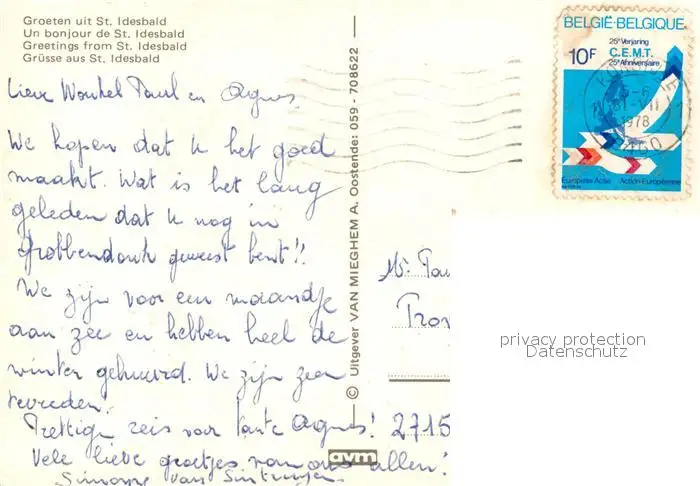 Groeten uit St. Idesbald
Un bonjour de St. Idesbald
Greetings from St. Idesbald
Grüsse aus St. Idesbald
Lieve Paul en Agnes
We hopen dat U het goed
maakt. Wat is het lang
geleden dat U nog in
Grobbendonk geweest bent!!
We zijn voor een maandje
aan zee en hebben heel de
winter gehuurd. We zijn zeer
tevreden.
Prettige reis voor tante Agnes!
Vele lieve groetjes van ons allen!
Simonne Van
© Uitgever VAN MIEGHEM A. Oostende: 059 - 708622
avm
BELGIË-BELGIQUE
25e Verjaring
10F C.E.M.T.
25e Anniversaire
Europese Actie Action Européenne
1978
Mr.
2715
privacy protection
Datenschutz